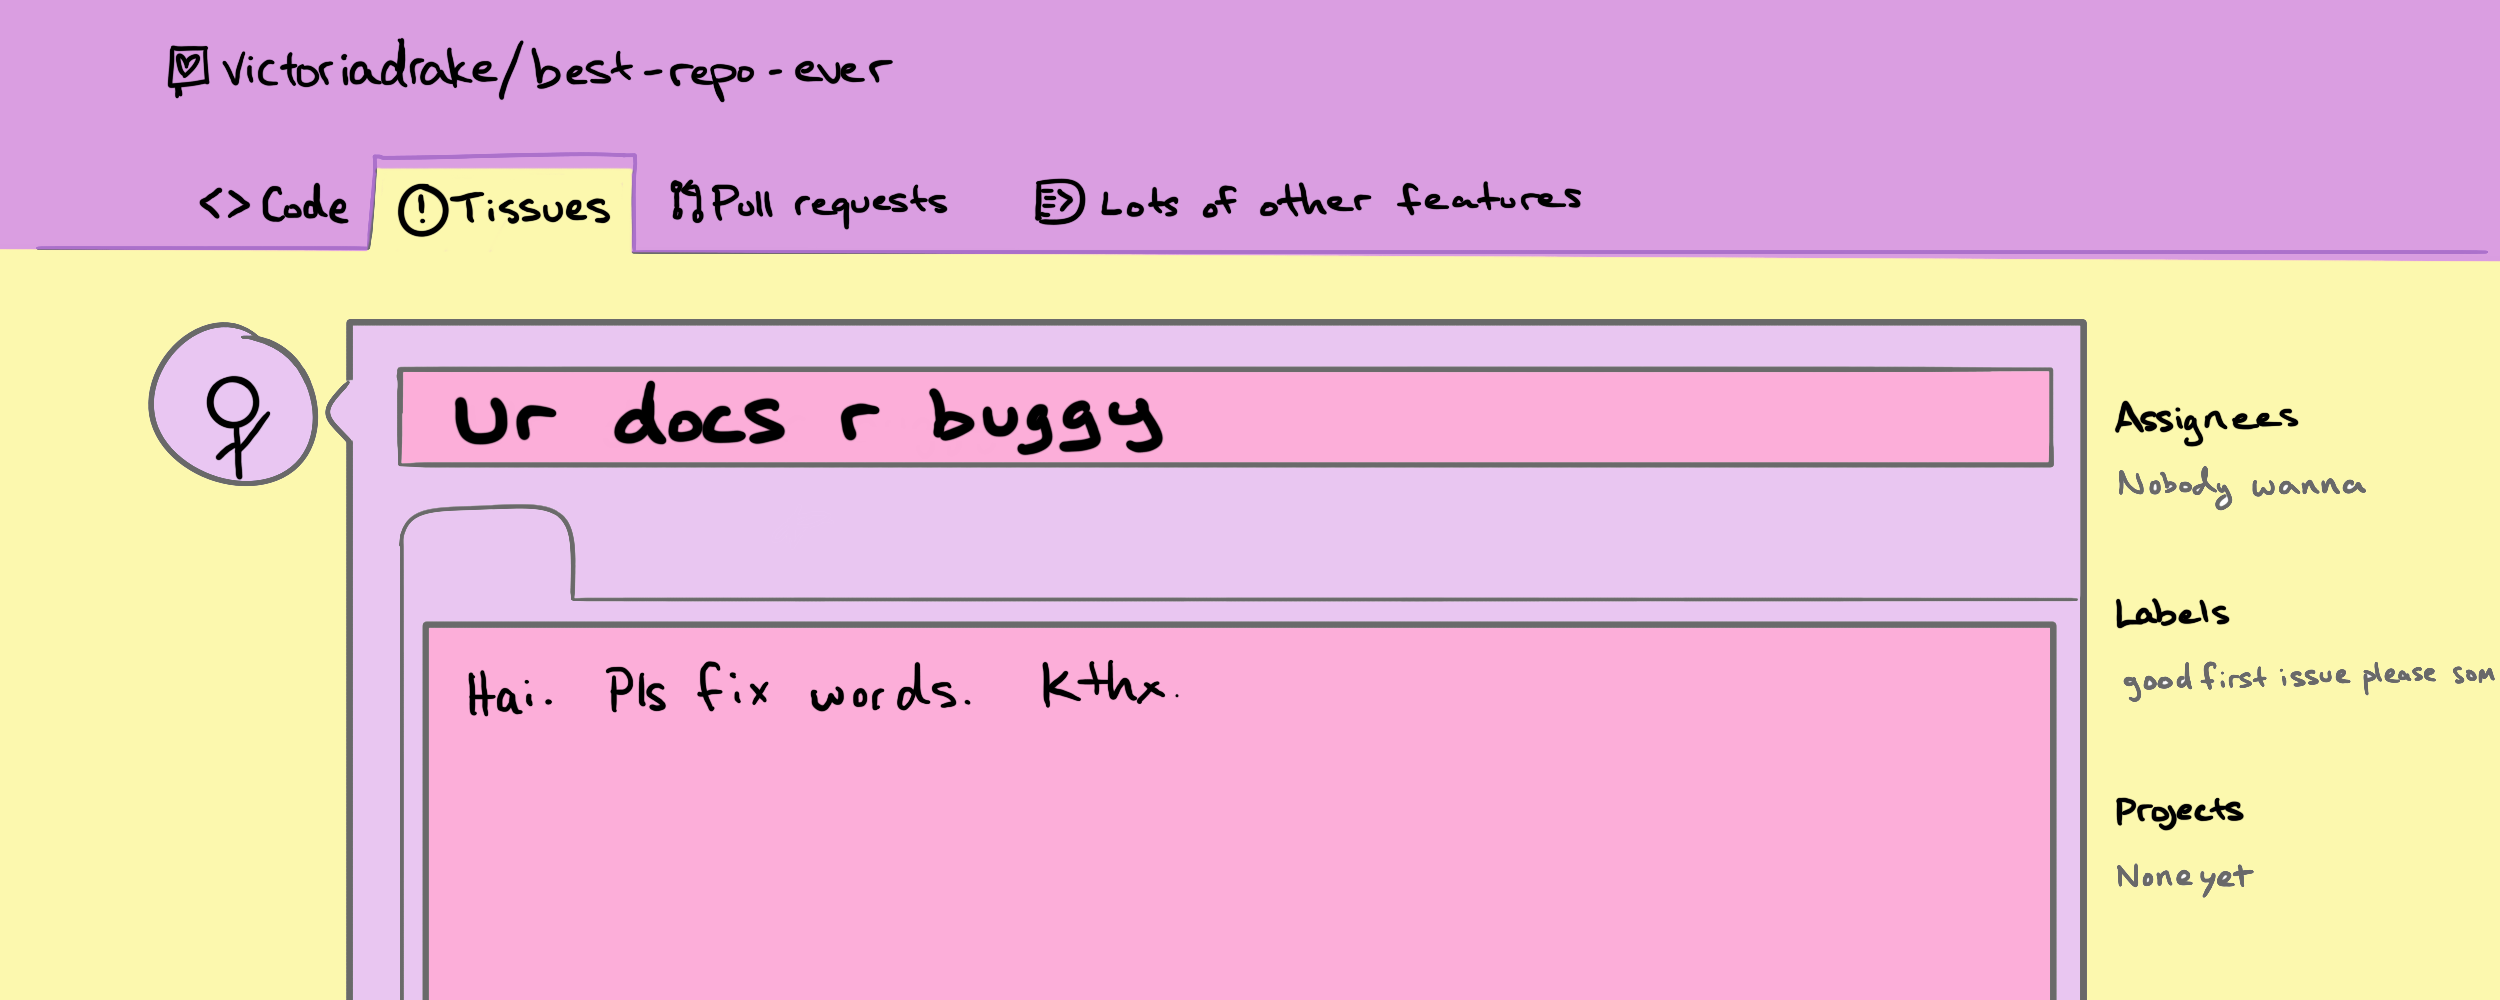 victoriadrake/best-repo-ever
<> Code
Issues
Pull requests
Lots of other features
ur docs r buggy
Hai. Pls fix words. Kthx.
Assignees
Nobody wanna
Labels
good first issue please som
Projects
None yet